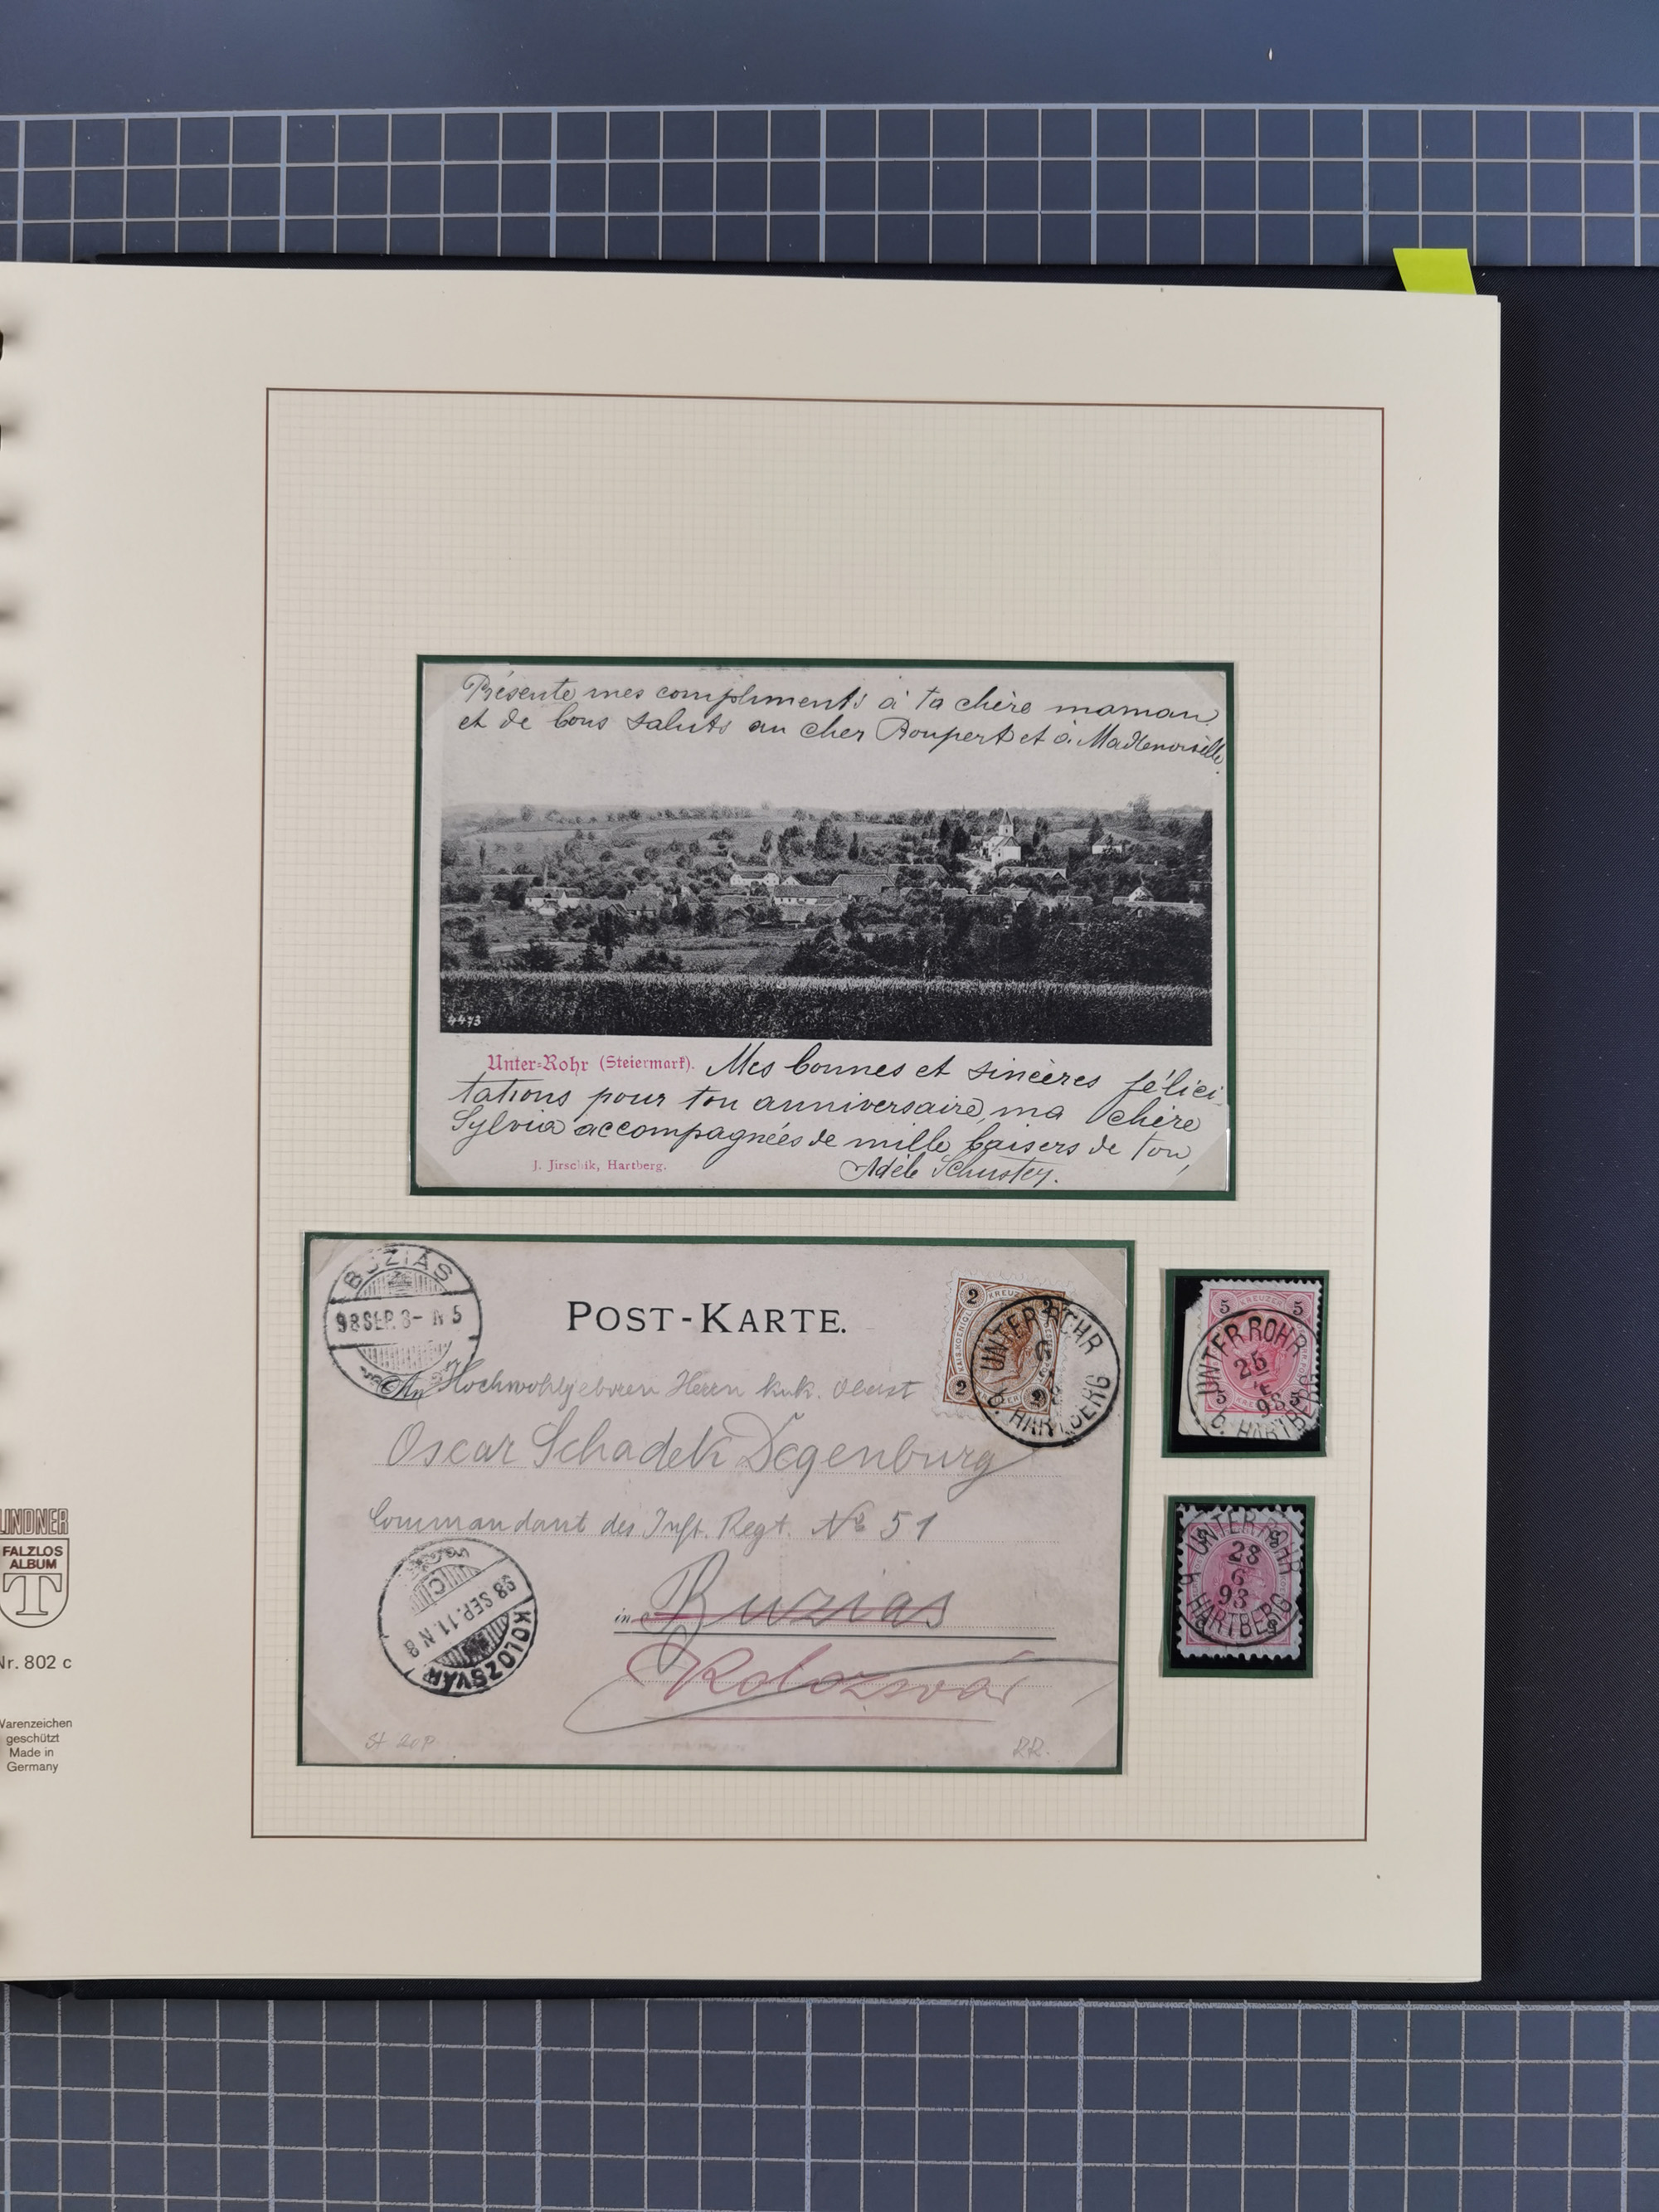 Présente mes compliments à ta chère maman
et de bons saluts au cher Roupert et à Mademoiselle.
4473
Unter-Rohr (Steiermark). Mes bonnes et sincères félici-
tations pour ton anniversaire, ma chère
Sylvia accompagnées de mille baisers de ton,
J. Jirschik, Hartberg. Adèle Schuster.
BUZIAS
98 SEP. 8- N 5
POST-KARTE.
2 KREUZER 2
UNTER ROHR
98
b. HARTBERG
2 2
An Hochwohlgeboren Herrn k.u.k. Oberst
Oscar Schadek Degenburg
Commandant des Inft. Regt. No 51
in Buzias
Kolozsvár
98 SEP. 11. N 8
KOLOZSVÁR
St 20 P
RR.
5 KREUZER 5
UNTER ROHR
25
98
b. HARTBERG
5 5
UNTER ROHR
28
6
93
b. HARTBERG
LINDNER
FALZLOS
ALBUM
T
Nr. 802 c
Warenzeichen
geschützt
Made in
Germany